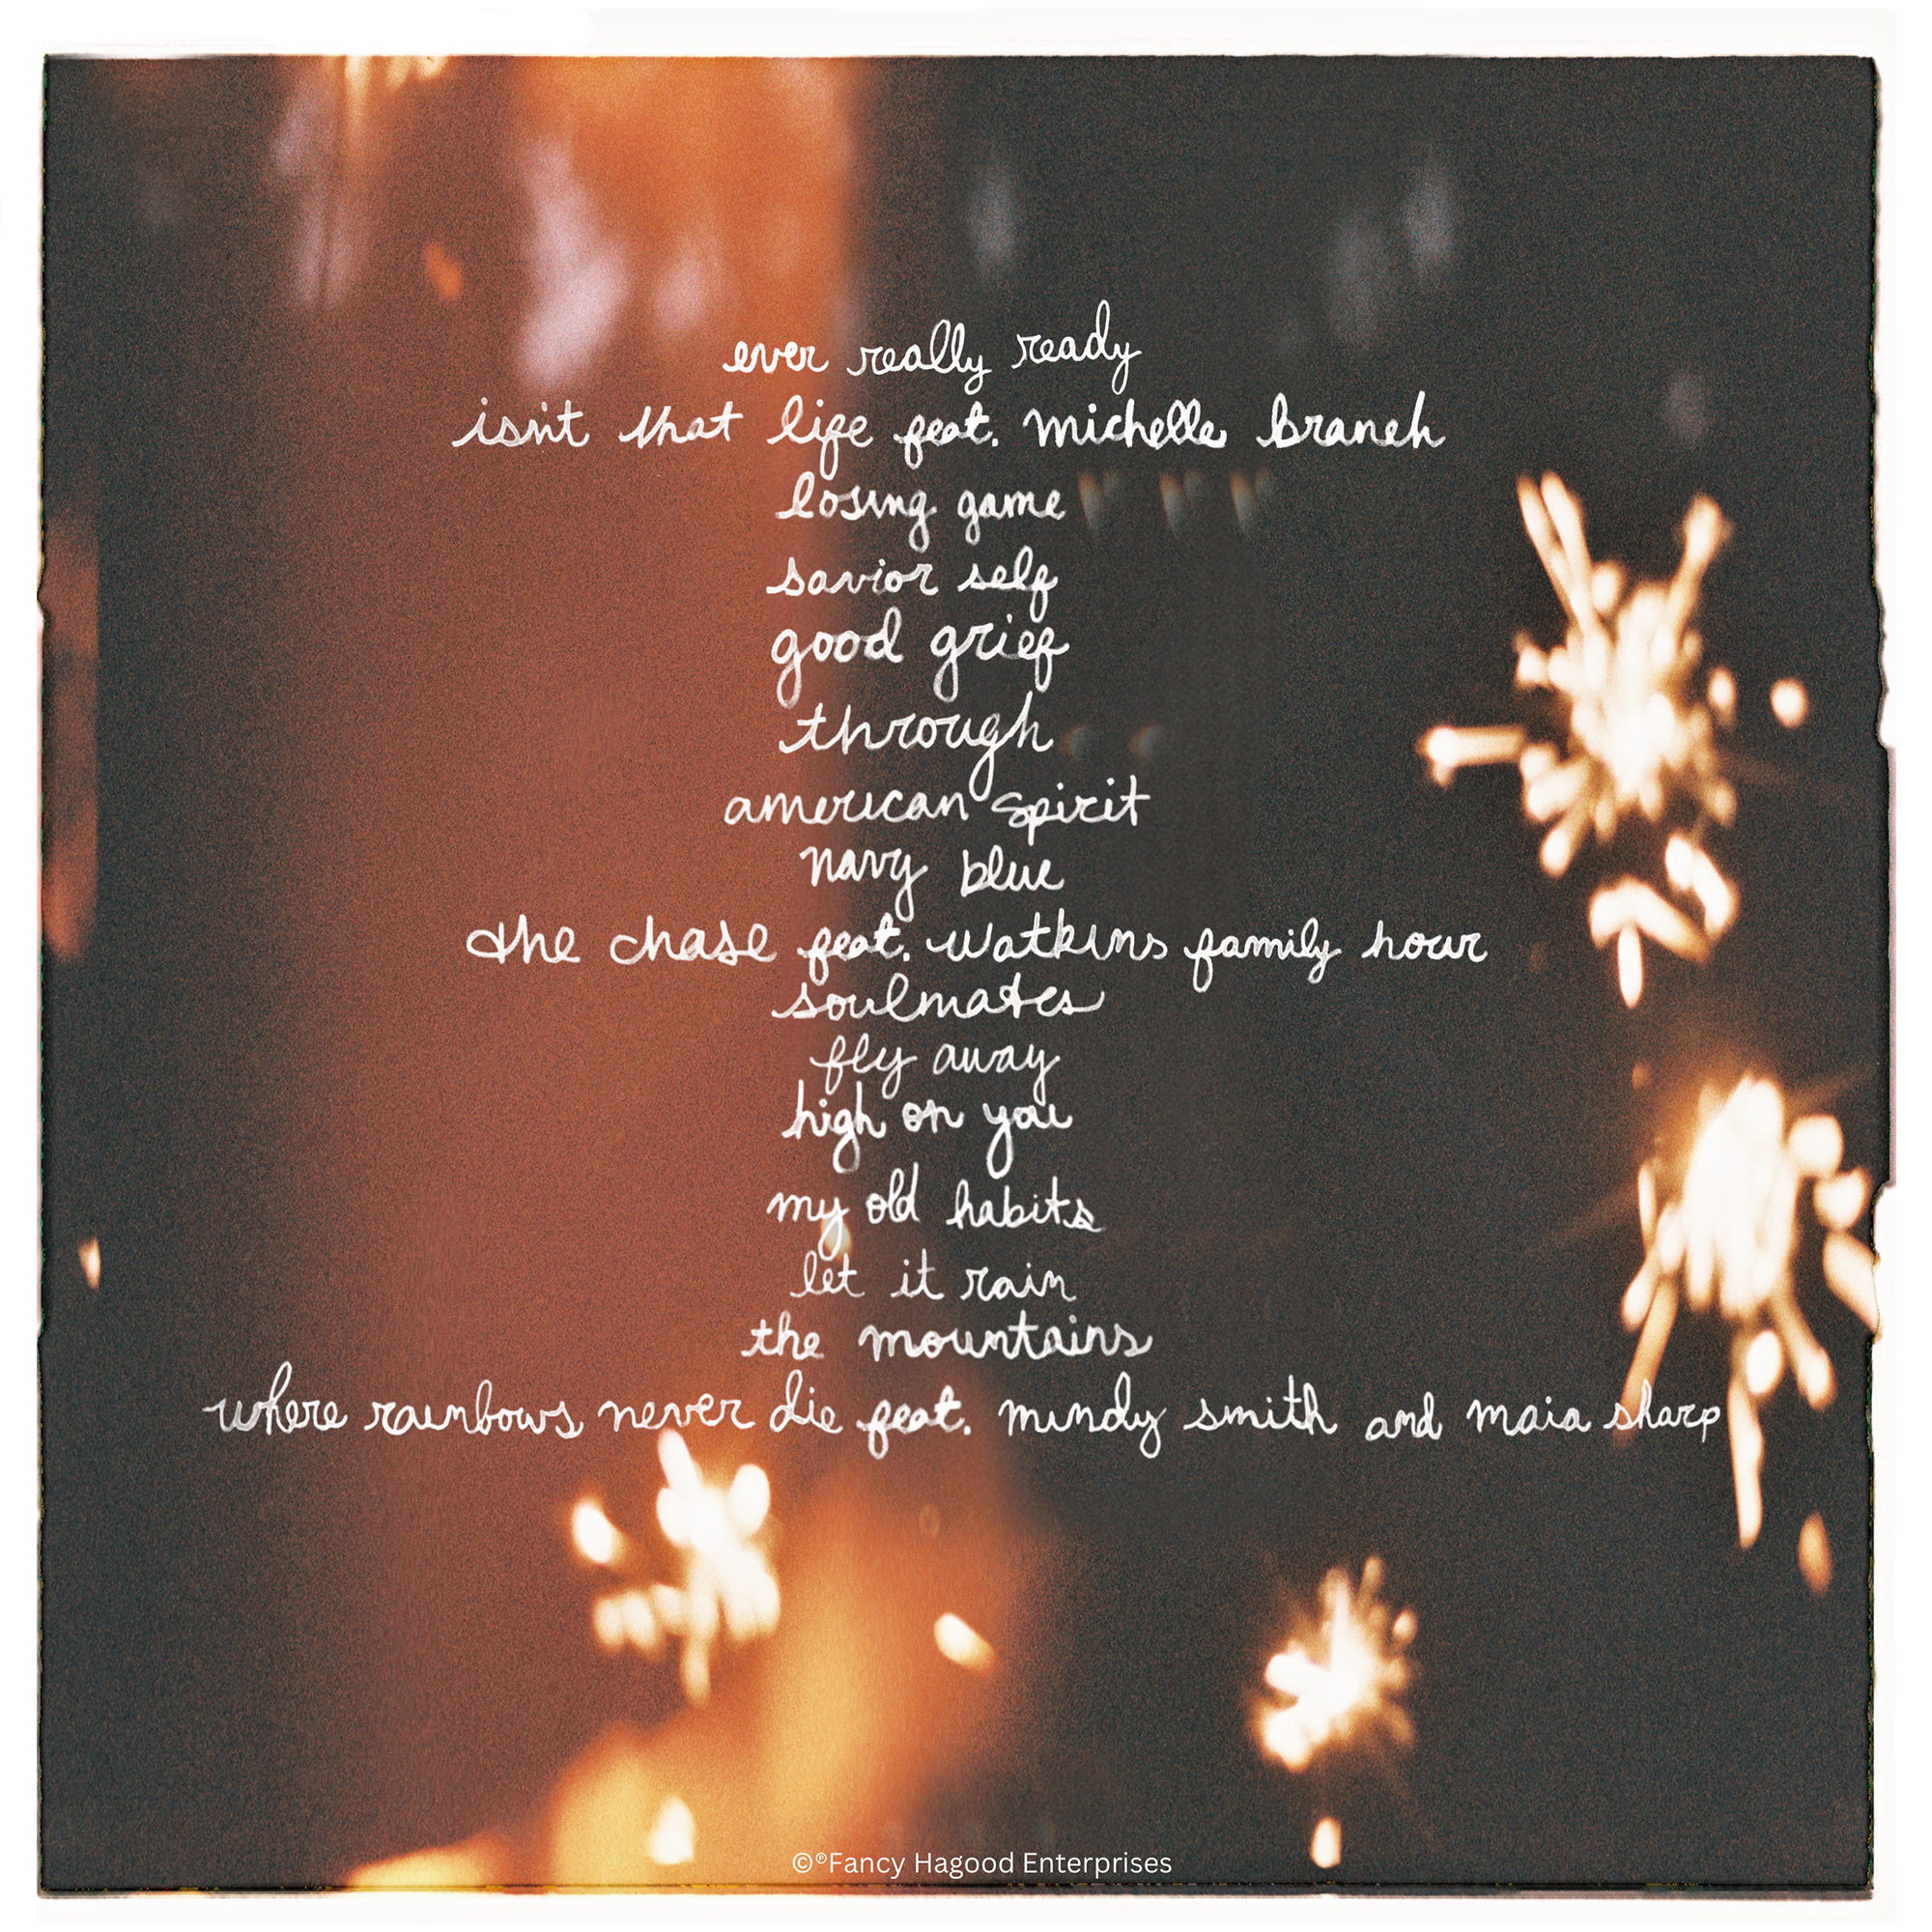 ever really ready
isn't that life feat. michelle branch
losing game
savior self
good grief
through
american spirit
navy blue
the chase feat. watkins family hour
soulmates
fly away
high on you
my old habits
let it rain
the mountains
where rainbows never die feat. mindy smith and maia sharp
©℗Fancy Hagood Enterprises